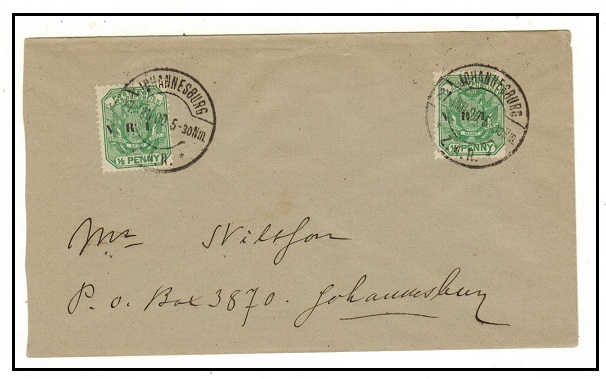 JOHANNESBURG
5-30N.m.
V R I
½ PENNY
JOHANNESBURG
V R I
½ PENNY
Mr
P. O. Box 3870. Johannesburg